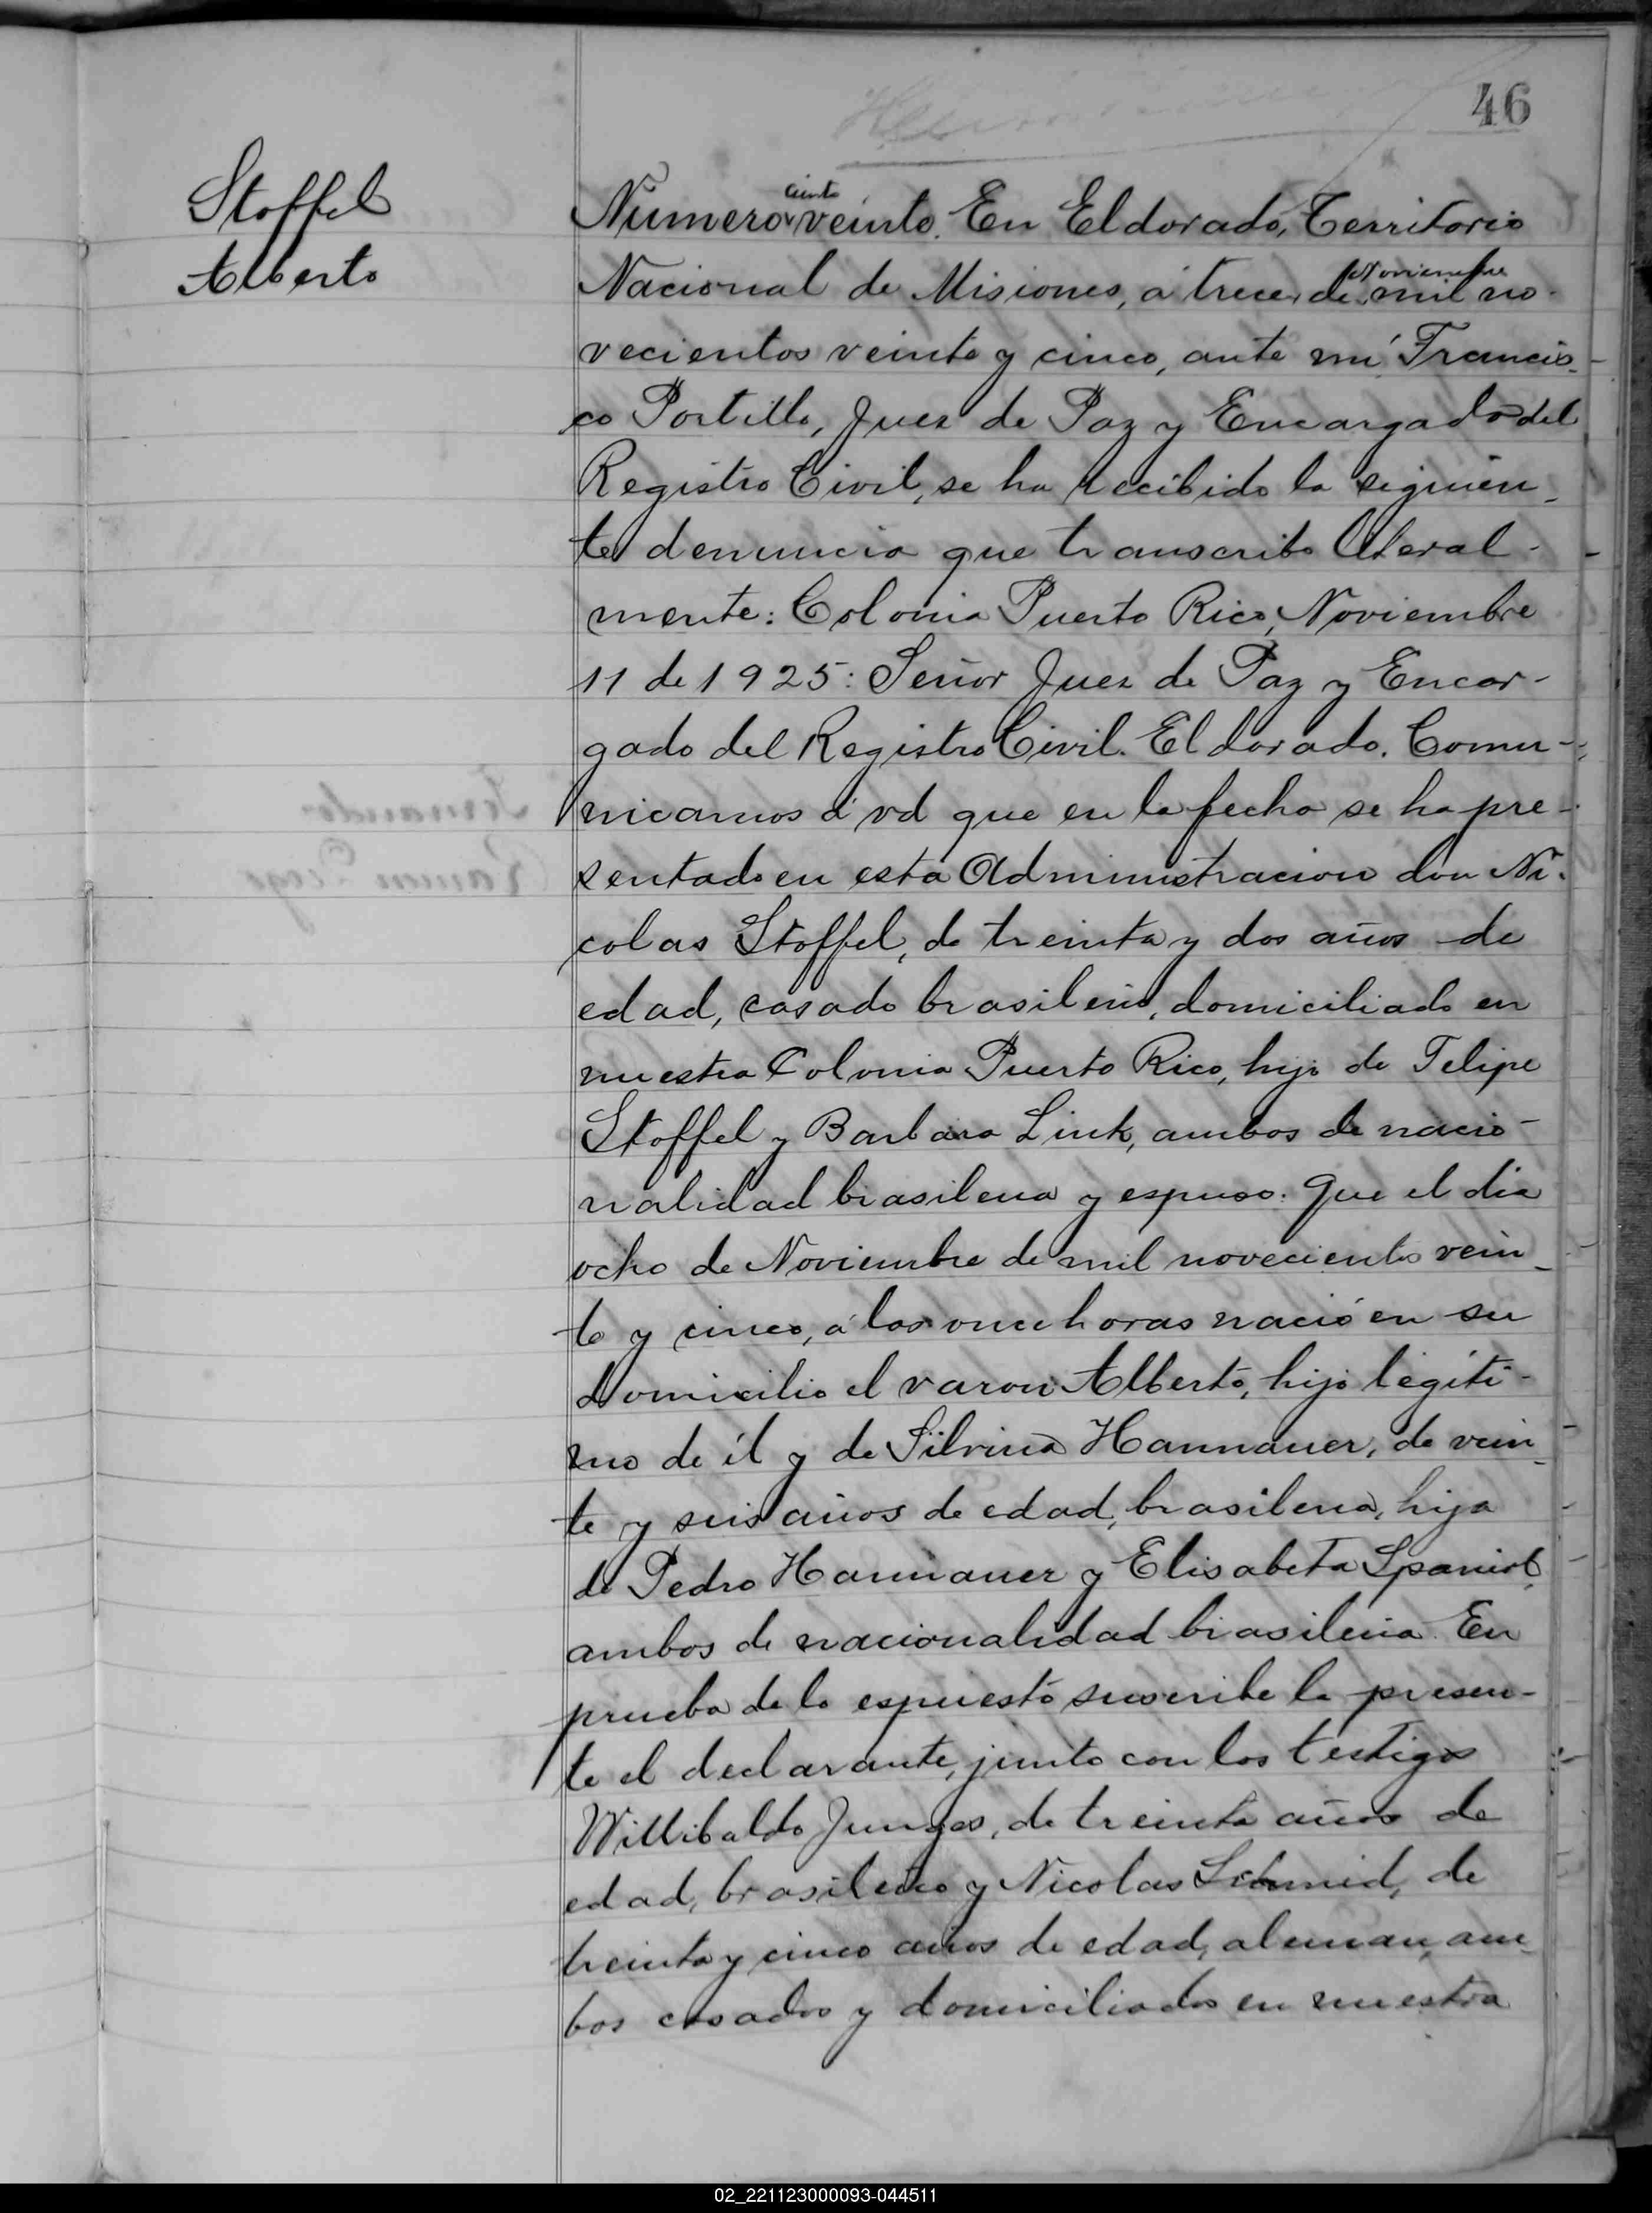 46
Stoffel
Alberto
Número ciento veinte. En Eldorado, Territorio
Nacional de Misiones, á trece, de Noviembre mil no-
vecientos veinte y cinco, ante mí Francis-
co Portillo, Juez de Paz y Encargado del
Registro Civil, se ha recibido la siguien-
te denuncia que transcribo literal-
mente: Colonia Puerto Rico, Noviembre
11 de 1925: Señor Juez de Paz y Encar-
gado del Registro Civil. Eldorado. Comu-
nicamos á vd que en la fecha se ha pre-
sentado en esta Administracion don Ni-
colas Stoffel, de treinta y dos años de
edad, casado brasileño, domiciliado en
nuestra Colonia Puerto Rico, hijo de Felipe
Stoffel y Barbara Link, ambos de nacio-
nalidad brasilena y espuso: Que el dia
ocho de Noviembre de mil novecientos vein-
te y cinco, á las once horas nació en su
domicilio el varon Alberto, hijo legíti-
mo de él y de Silvina Hannauer, de vein-
te y seis años de edad, brasilena, hija
de Pedro Hannauer y Elisabeta Spaniol,
ambos de nacionalidad brasileña. En
prueba de lo espuesto suscribe la presen-
te el declarante, junto con los testigos
Willibaldo Junges, de treinta años de
edad, brasileño y Nicolas Schmid, de
treinta y cinco años de edad, aleman, am-
bos casados y domiciliados en nuestra
02_221123000093-044511